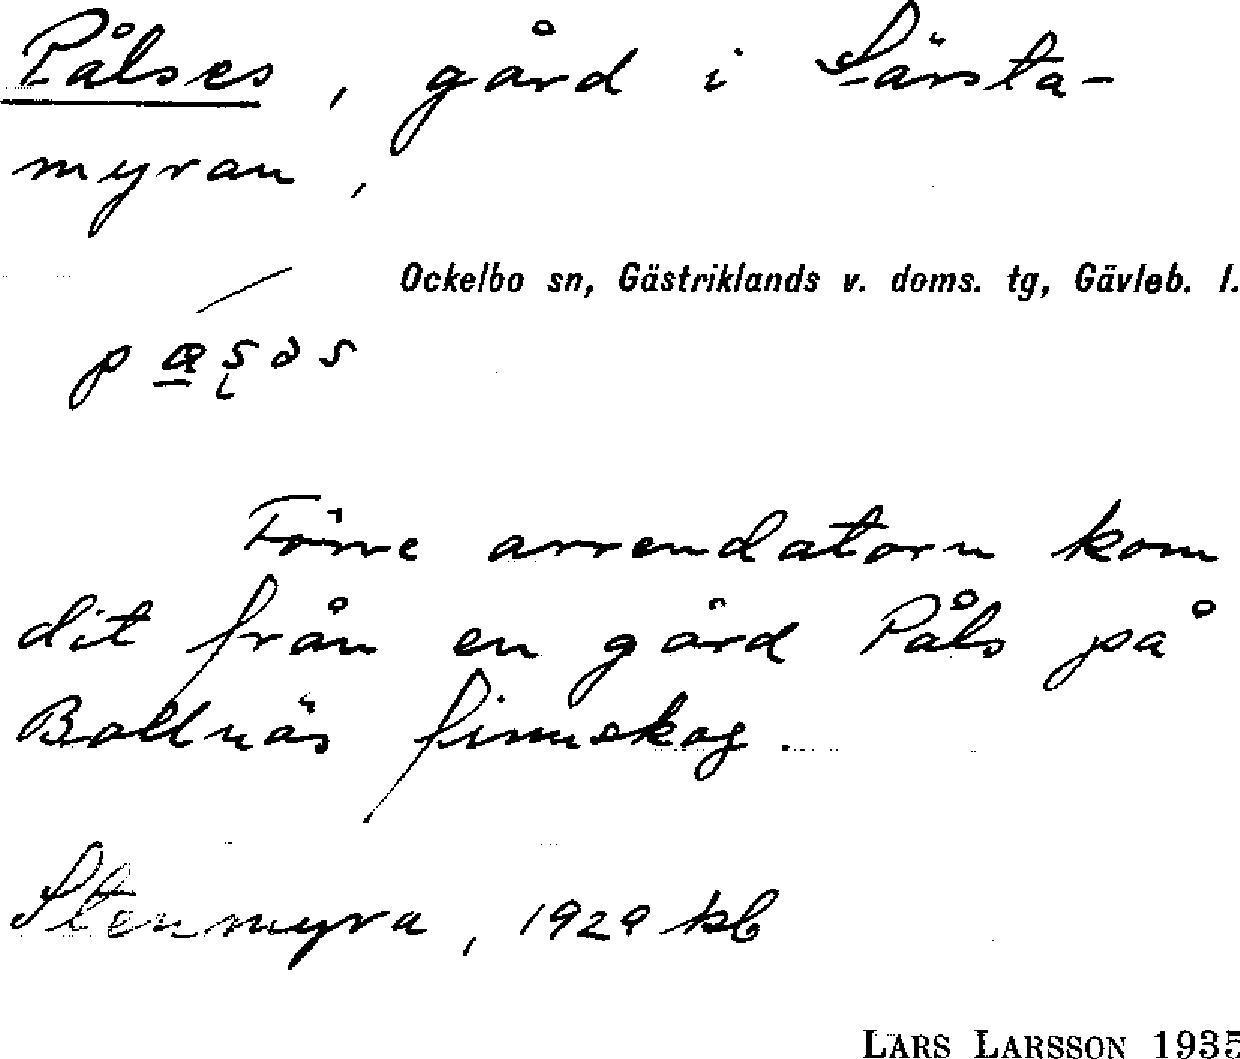 Pålses, gård i Särsta-
myran,
Ockelbo sn, Gästriklands v. doms. tg, Gävleb. l.
Förre arrendatorn kom
dit från en gård Påls på
Bollnäs finnskog.
Stenmyra, 1929 kb
LARS LARSSON 1935